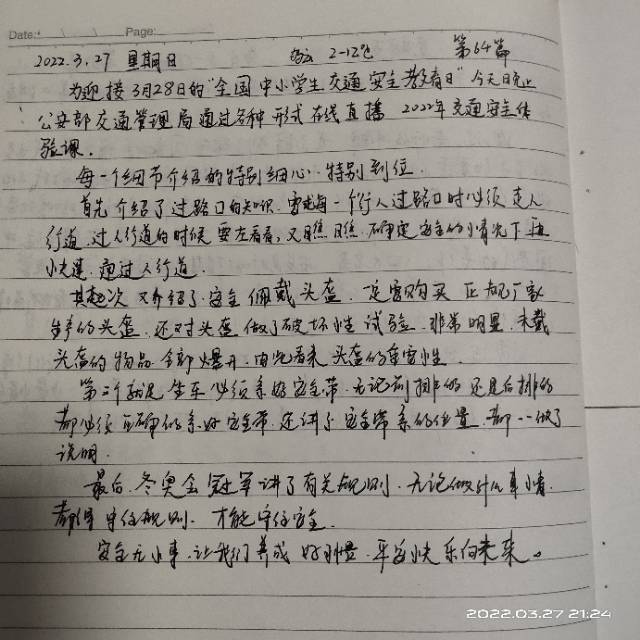 Date: Page:
2022.3.27 星期日 多云 2-12℃ 第64篇
为迎接3月28日的“全国中小学生交通安全教育日”今天晚上
公安部交通管理局通过各种形式在线直播 2022年交通安全体
验课.
每一个细节介绍的特别细心.特别到位.
首先介绍了过路口的知识.每一个行人过路口时必须走人
行道.过人行道的时候要左看看,又瞧瞧.确定安全的情况下再
快速.通过人行道.
其次又介绍了安全佩戴头盔.一定要购买正规厂家
生产的头盔.还对头盔做了破坏性试验.非常明显.未戴
头盔的物品全部爆开.由此看来头盔的重要性.
第三个就是坐车必须系好安全带.无论前排的还是后排的
都必须正确的系好安全带.还讲了安全带系的位置.都一一做了
说明.
最后.冬奥会冠军讲了有关规则.无论做什么事情.
都得守住规则.才能守住安全.
安全无小事.让我们养成好习惯.平安快乐向未来。
2022.03.27 21:24